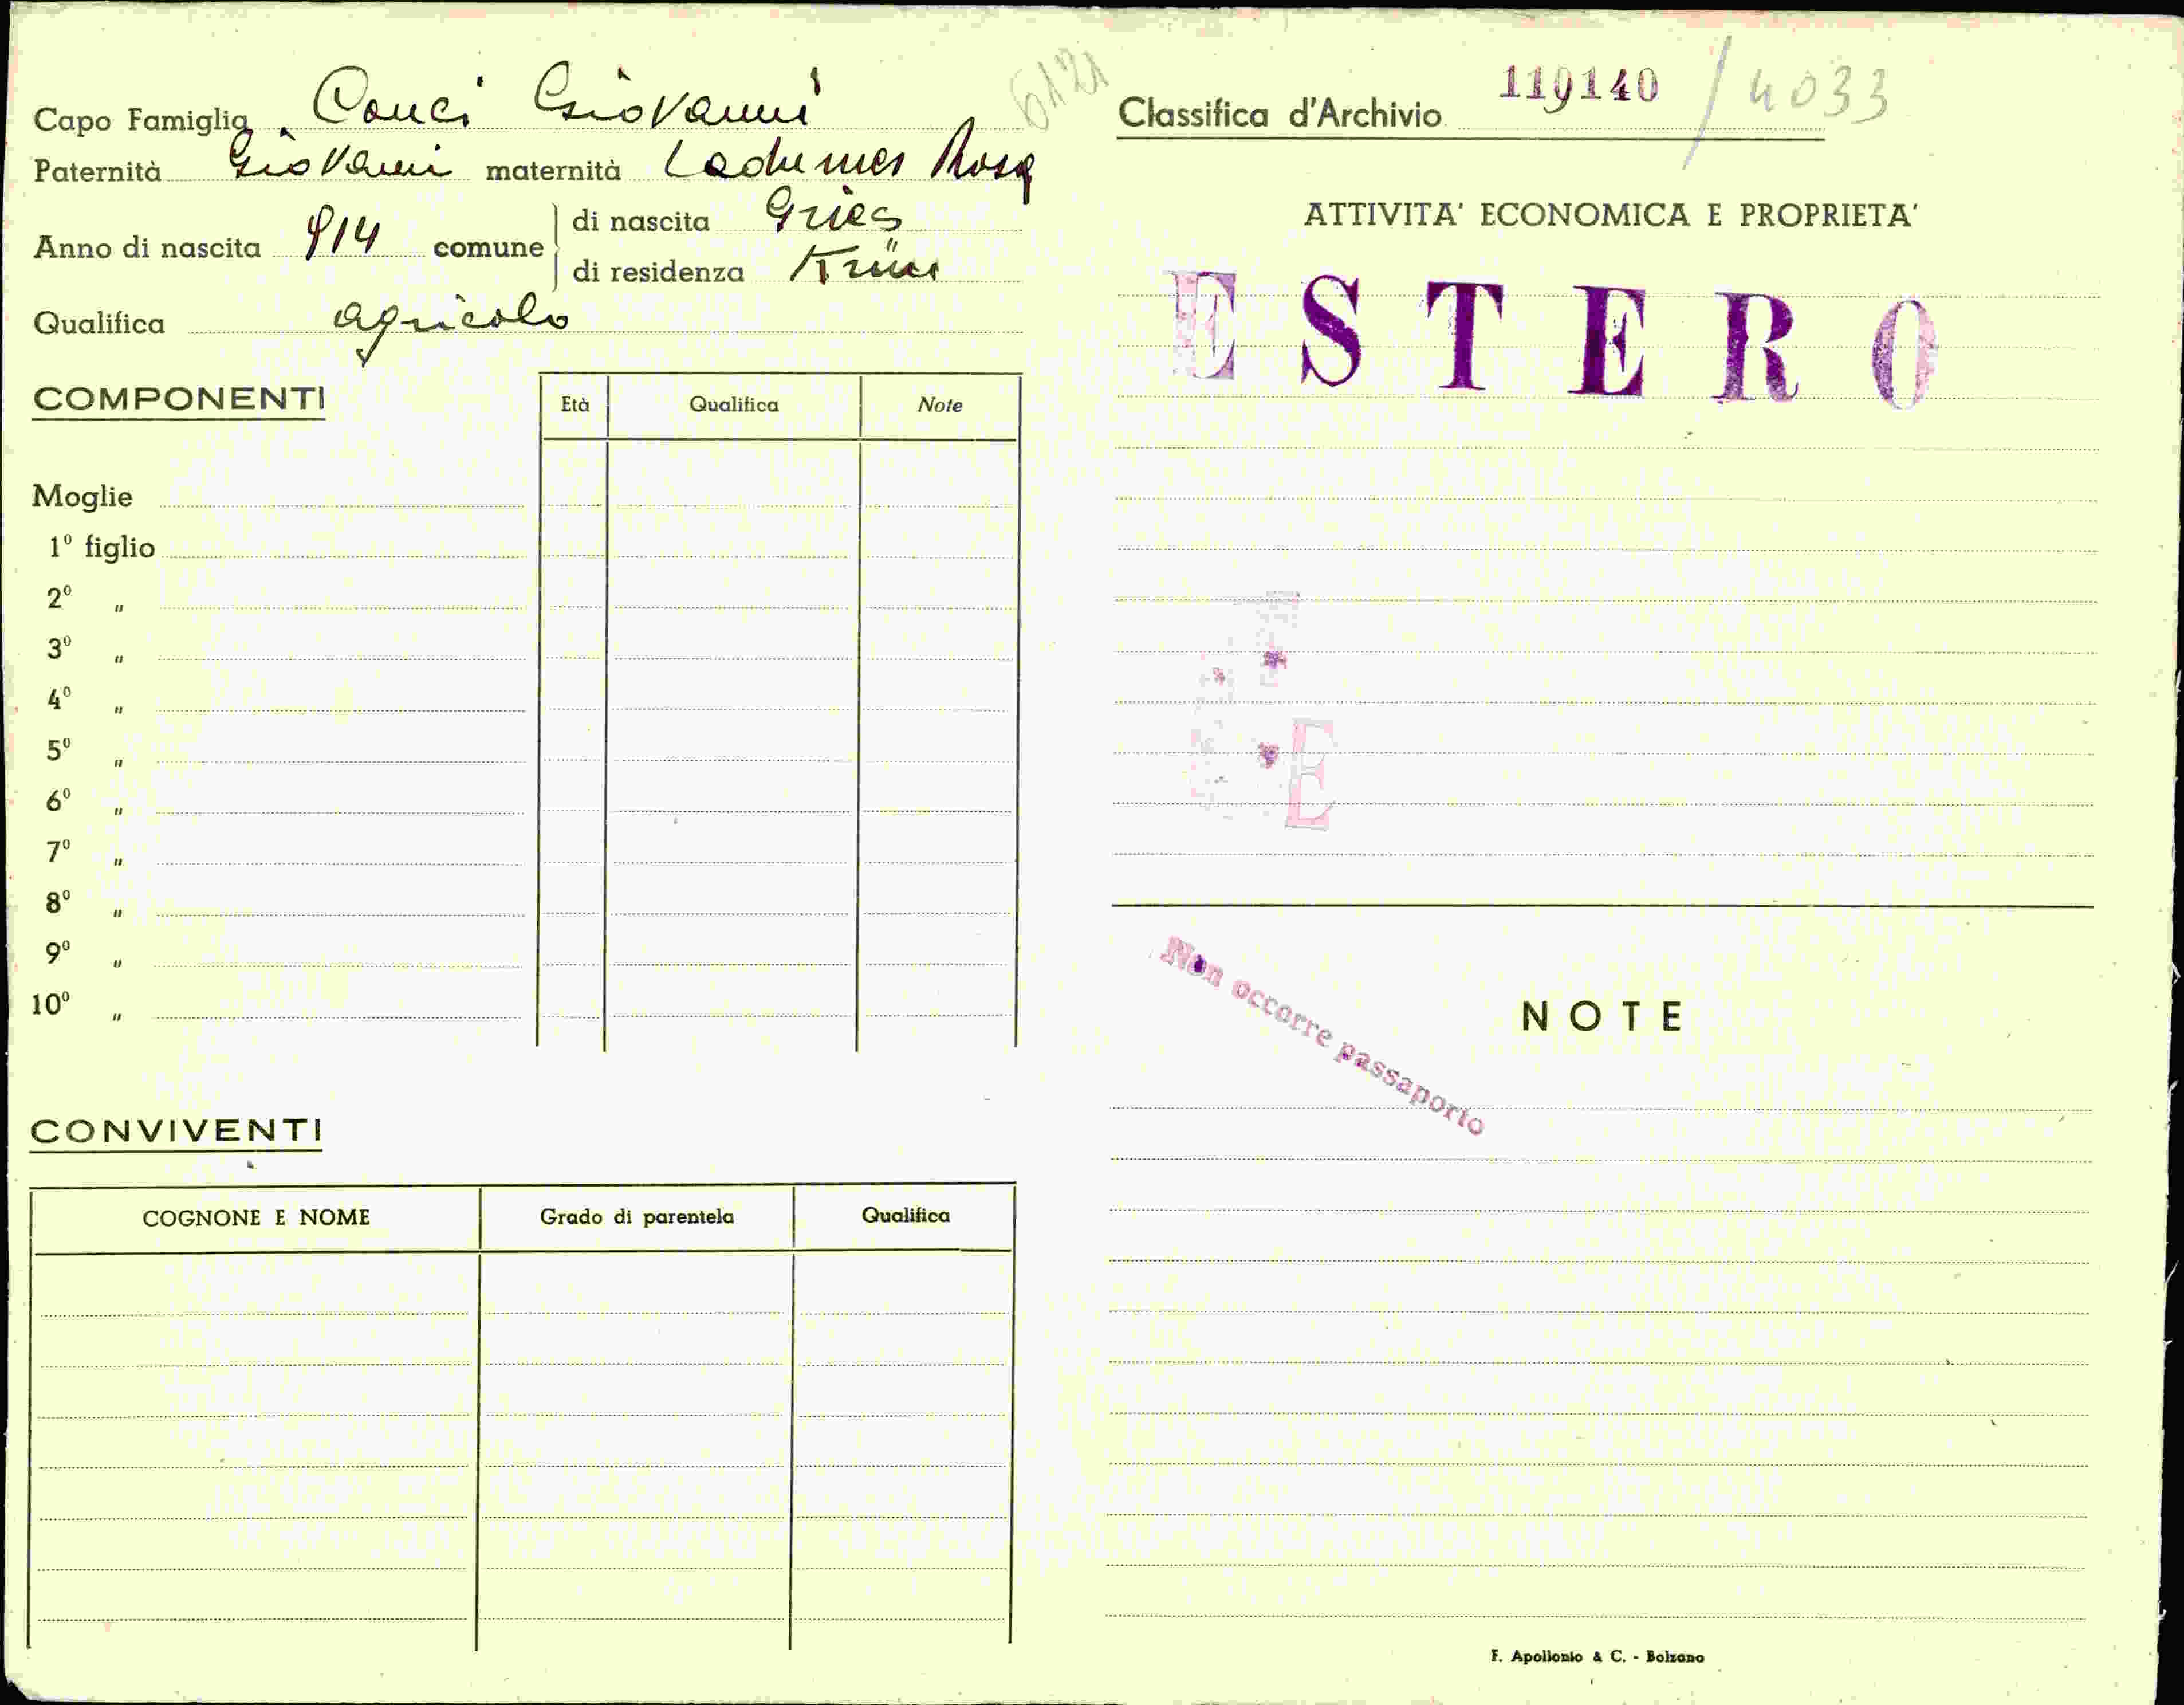 Capo Famiglia Conci Giovanni
6121
Paternità Giovanni maternità Rosa
Anno di nascita 914 comune
di nascita Gries
di residenza Krün
Qualifica agricolo
COMPONENTI
Età Qualifica Note
Moglie
1º figlio
2º "
3º "
4º "
5º "
6º "
7º "
8º "
9º "
10º "
CONVIVENTI
COGNONE E NOME Grado di parentela Qualifica
Classifica d'Archivio 119140 / 4033
ATTIVITA' ECONOMICA E PROPRIETA'
ESTERO
E
Non occorre passaporto
NOTE
F. Apollonio & C. - Bolzano